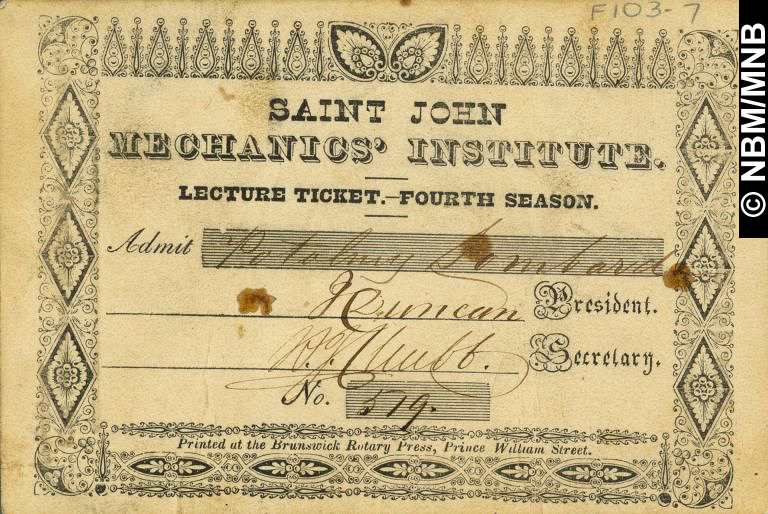 F103-7
SAINT JOHN
MECHANICS' INSTITUTE.
LECTURE TICKET.—FOURTH SEASON.
Admit Potolmy Lombard
Duncan President.
W. J. Chubb. Secretary.
No. 519.
Printed at the Brunswick Rotary Press, Prince William Street.
© NBM/MNB